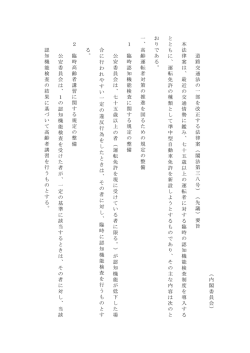 （内閣委員会）
道路交通法の一部を改正する法律案（閣法第二八号）（先議）要旨
本法律案は、最近の交通情勢に鑑み、七十五歳以上の運転者に対する臨時の認知機能検査制度を導入する
とともに、運転免許の種類として準中型自動車免許を新設しようとするものであり、その主な内容は次のと
おりである。
一、高齢運転者対策の推進を図るための規定の整備
1 臨時認知機能検査に関する規定の整備
公安委員会は、七十五歳以上の者（運転免許を現に受けている者に限る。）が認知機能が低下した場
合に行われやすい一定の違反行為をしたときは、その者に対し、臨時に認知機能検査を行うものとす
る。
2 臨時高齢者講習に関する規定の整備
公安委員会は、1の認知機能検査を受けた者が、一定の基準に該当するときは、その者に対し、当該
認知機能検査の結果に基づいて高齢者講習を行うものとする。